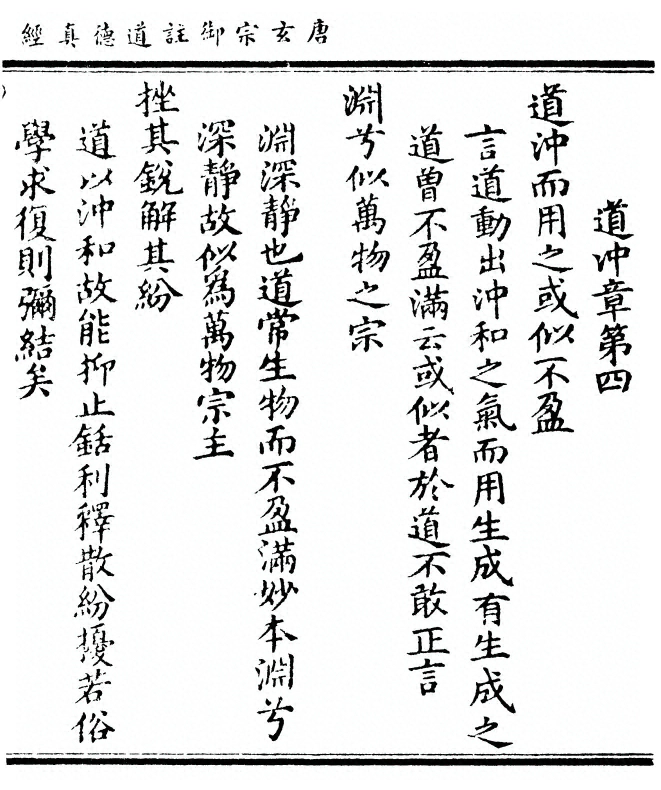 唐玄宗御註道德真經
道沖章第四
道沖而用之或似不盈
言道動出沖和之氣而用生成有生成之
道曾不盈滿云或似者於道不敢正言
淵兮似萬物之宗
淵深靜也道常生物而不盈滿妙本淵兮
深靜故似爲萬物宗主
挫其銳解其紛
道以沖和故能抑止銛利釋散紛擾若俗
學求復則彌結矣